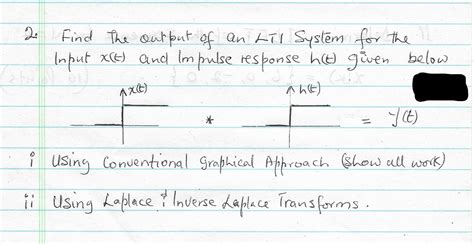 2. Find The output of an LTI System for the
Input x(t) and Impulse response h(t) given below
x(t) h(t)
* = y(t)
i Using Conventional Graphical Approach (Show all work)
ii Using Laplace & Inverse Laplace Transforms.